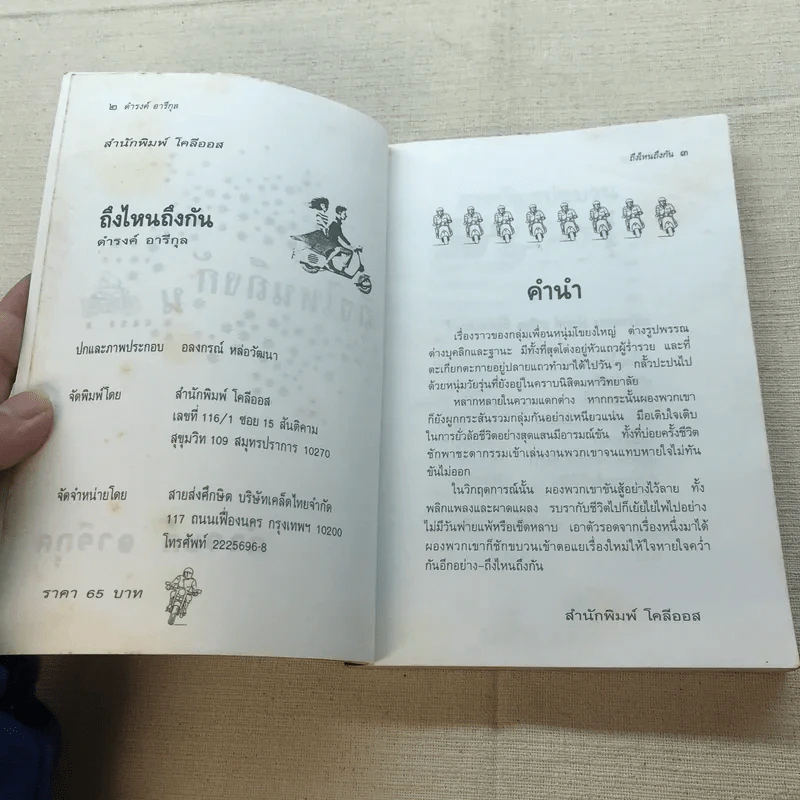 ๒ ดำรงค์ อารีกุล
สำนักพิมพ์ โคลีออส
ถึงไหนถึงกัน
ดำรงค์ อารีกุล
ปกและภาพประกอบ อลงกรณ์ หล่อวัฒนา
จัดพิมพ์โดย สำนักพิมพ์ โคลีออส
เลขที่ 116/1 ซอย 15 สันติคาม
สุขุมวิท 109 สมุทรปราการ 10270
จัดจำหน่ายโดย สายส่งศึกษิต บริษัทเคล็ดไทยจำกัด
117 ถนนเฟื่องนคร กรุงเทพฯ 10200
โทรศัพท์ 2225696-8
ราคา 65 บาท
ถึงไหนถึงกัน ๓
คำนำ
เรื่องราวของกลุ่มเพื่อนหนุ่มโขยงใหญ่ ต่างรูปพรรณ
ต่างบุคลิกและฐานะ มีทั้งที่สุดโด่งอยู่หัวแถวผู้ร่ำรวย และที่
ตะเกียกตะกายอยู่ปลายแถวทำมาได้ไปวัน ๆ กลั้วปะปนไป
ด้วยหนุ่มวัยรุ่นที่ยังอยู่ในคราบนิสิตมหาวิทยาลัย
หลากหลายในความแตกต่าง หากกระนั้นผองพวกเขา
ก็ยังผูกกระสันรวมกลุ่มกันอย่างเหนียวแน่น มือเติบใจเติบ
ในการยั่วล้อชีวิตอย่างสุดแสนมีอารมณ์ขัน ทั้งที่บ่อยครั้งชีวิต
ชักพาชะตากรรมเข้าเล่นงานพวกเขาจนแทบหายใจไม่ทัน
ขันไม่ออก
ในวิกฤตการณ์นั้น ผองพวกเขาขันสู้อย่างไว้ลาย ทั้ง
พลิกแพลงและผาดแผลง รบรากับชีวิตไปก็เย้ยไยไพไปอย่าง
ไม่มีวันพ่ายแพ้หรือเข็ดหลาบ เอาตัวรอดจากเรื่องหนึ่งมาได้
ผองพวกเขาก็ชักขบวนเข้าตอแยเรื่องใหม่ให้ใจหายใจคว่ำ
กันอีกอย่าง-ถึงไหนถึงกัน
สำนักพิมพ์ โคลีออส